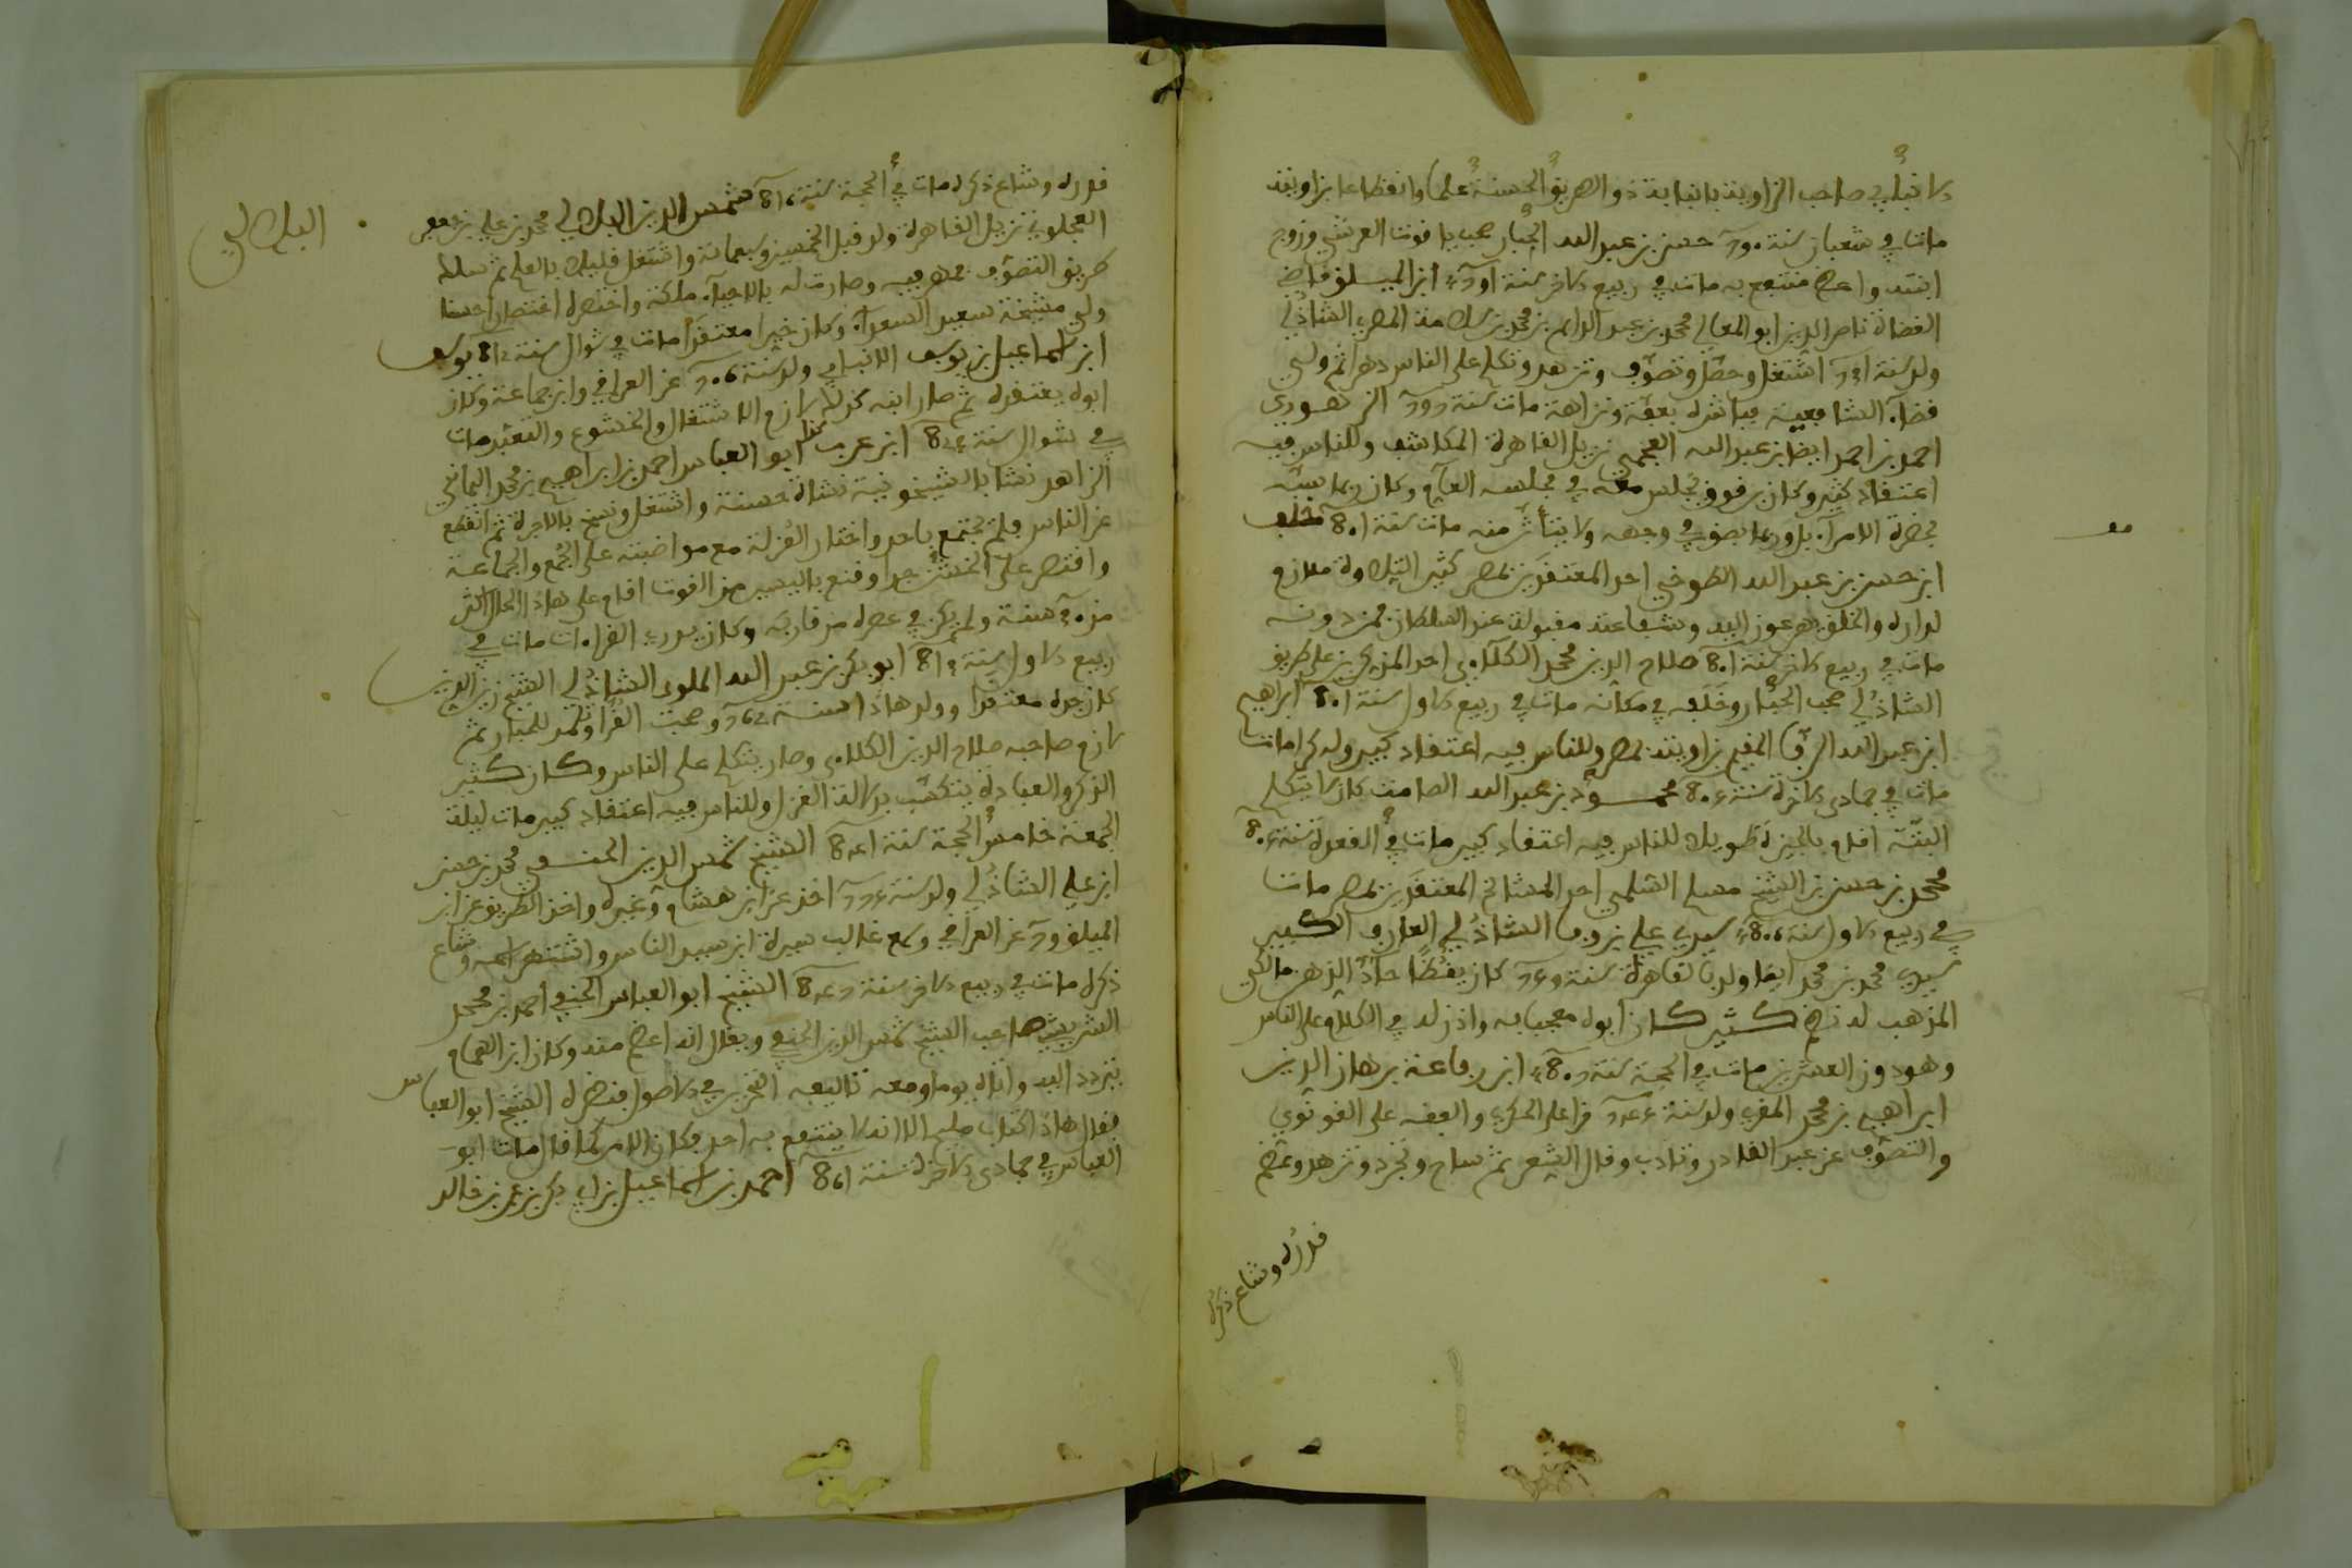 الانبابي صاحب الزاوية بانبابة ذو الطريقة الحسنة علما وانقطاعا بزاويته
مات في شعبان سنة حسن بن عبد الله الحبار صحب ياقوت العرشي وزوج
ابنته واعظ منتفع به مات في ربيع الاخر سنة ابن الميلق قاضي
القضاة ناصر الدين ابو المعالي محمد بن عبد الدايم بن محمد بن سلامة المصري الشاذلي
ولد سنة اشتغل وحصّل وتصوّف وتزهد وتكلم على الناس دهرا ثم ولي
قضاء الشافعية فباشره بعفّة ونزاهة مات سنة الزهوري
احمد بن احمد ايضا بن عبد الله العجمي نزيل القاهرة المكاشف وللناس فيه
اعتقاد كثير وكان برقوق يجلس معه في مجلسه العام وكان ربما سبّه
بحضرة الامراء بل وربما بصق في وجهه ولا يتأثر منه مات سنة 801 خلف
ابن حسن بن عبد الله الطوخي احد المعتقدين بمصر كثير التلاوة ملازم
لداره والخلق يهرعون اليه وشفاعته مقبولة عند السلطان فمن دونه
مات في ربيع الاخر سنة 801 صلاح الدين محمد الكلاءي احد المذكرين على طريق
الشاذلي صحب الحبار وخلفه في مكانه مات في ربيع الاول سنة 801 ابراهيم
ابن عبد الله الرفا المقيم بزاويته بمصر وللناس فيه اعتقاد كبير وله كرامات
مات في جمادى الاخرة سنة 804 محمود بن عبد الله الصامت كان لا يتكلم
البتّة اقام بالجيزة طويلا للناس فيه اعتقاد كبير مات في القعدة سنة 804
محمد بن حسن بن الشيخ مسلم السلمي احد المشائخ المعتقدين بمصر مات
في ربيع الاول سنة 806 سيدي علي بن وفا الشاذلي العارف الكبير
سيدي محمد بن محمد ايضا ولد بالقاهرة سنة كان يقظًا حادّ الذهن مالكي
المذهب له نظم كثير كان ابوه معجبا به واذن له في الكلام على الناس
وهو دون العشرين مات في الحجة سنة ابن رفاعة برهان الدين
ابراهيم بن محمد المقري ولد سنة قرا على الحكري والفقه على القونوي
والتصوّف عن عبد القادر وتادب وقال الشعر ثم ساح وتجرد وتزهد وعظم
قدره وشاع ذكره
قدره وشاع ذكره مات في الحجة سنة 816 شمس الدين البلالي محمد بن علي بن جعفر
البلالي
العجلوني نزيل القاهرة ولد قبل الخمسين وسبعمائة واشتغل قليلا بالعلم ثم سلك
طريق التصوّف فمهر فيه وصارت له بالاحياء ملكة واختصره اختصارا حسنا
ولي مشيخة سعيد السعداء وكان خيرا معتقدا مات في شوال سنة يوسف
ابن اسماعيل بن يوسف الانبابي ولد سنة عن العراقي وابن جماعة وكان
ابوه يعتقد ثم صار ابنه كذلك لازم الاشتغال والخشوع والتعبد مات
في شوال سنة ابن عرب ابو العباس احمد بن ابراهيم بن محمد اليماني
الزاهد نشا بالشيخونية نشاة حسنة واشتغل ونسخ بالاجرة ثم انقطع
عن الناس فلم يجتمع باحد واختار العزلة مع مواظبته على الجمع والجماعة
واقتصر على الخشن جدا وقنع باليسير من القوت اقام على هاذا الحال اكثر
من سنة ولم يكن في عصره من قاربه وكان يدري القراءات مات في
ربيع الاول سنة ابو بكر بن عبد الله الملوي الشاذلي الشيخ زين الدين
كان جده معتقدا وولد هاذا سنة وصحب الفقرا وتلمذ للحبار ثم
لازم صاحبه صلاح الدين الكلاءي وصار يتكلم على الناس وكان كثير
الذكر والعبادة يتكسّب بدلالة الغزل وللناس فيه اعتقاد كبير مات ليلة
الجمعة خامس الحجة سنة الشيخ شمس الدين الحنفي محمد بن حسن
ابن علي الشاذلي ولد سنة اخذ عن ابن هشام وغيره واخذ الطريق عن ابن
الميلق عن العراقي وسمع غالب سيرة ابن سيد الناس واشتهر اسمه وشاع
ذكره مات في ربيع الاخر سنة الشيخ ابو العباس الحنفي احمد بن محمد
صاحب الشيخ شمس الدين الحنفي ويقال انه اعظم منه وكان ابن الهمام
يتردد اليه واتاه يوما ومعه تاليفه التحرير في الاصول فنظره الشيخ ابو العباس
فقال هاذا كتاب مليح الا انه لا ينتفع به احد فكان الامر كما قال مات ابو
العباس في جمادى الاخرة سنة 861 احمد بن اسماعيل بن ابي بكر بن عمر بن خالد